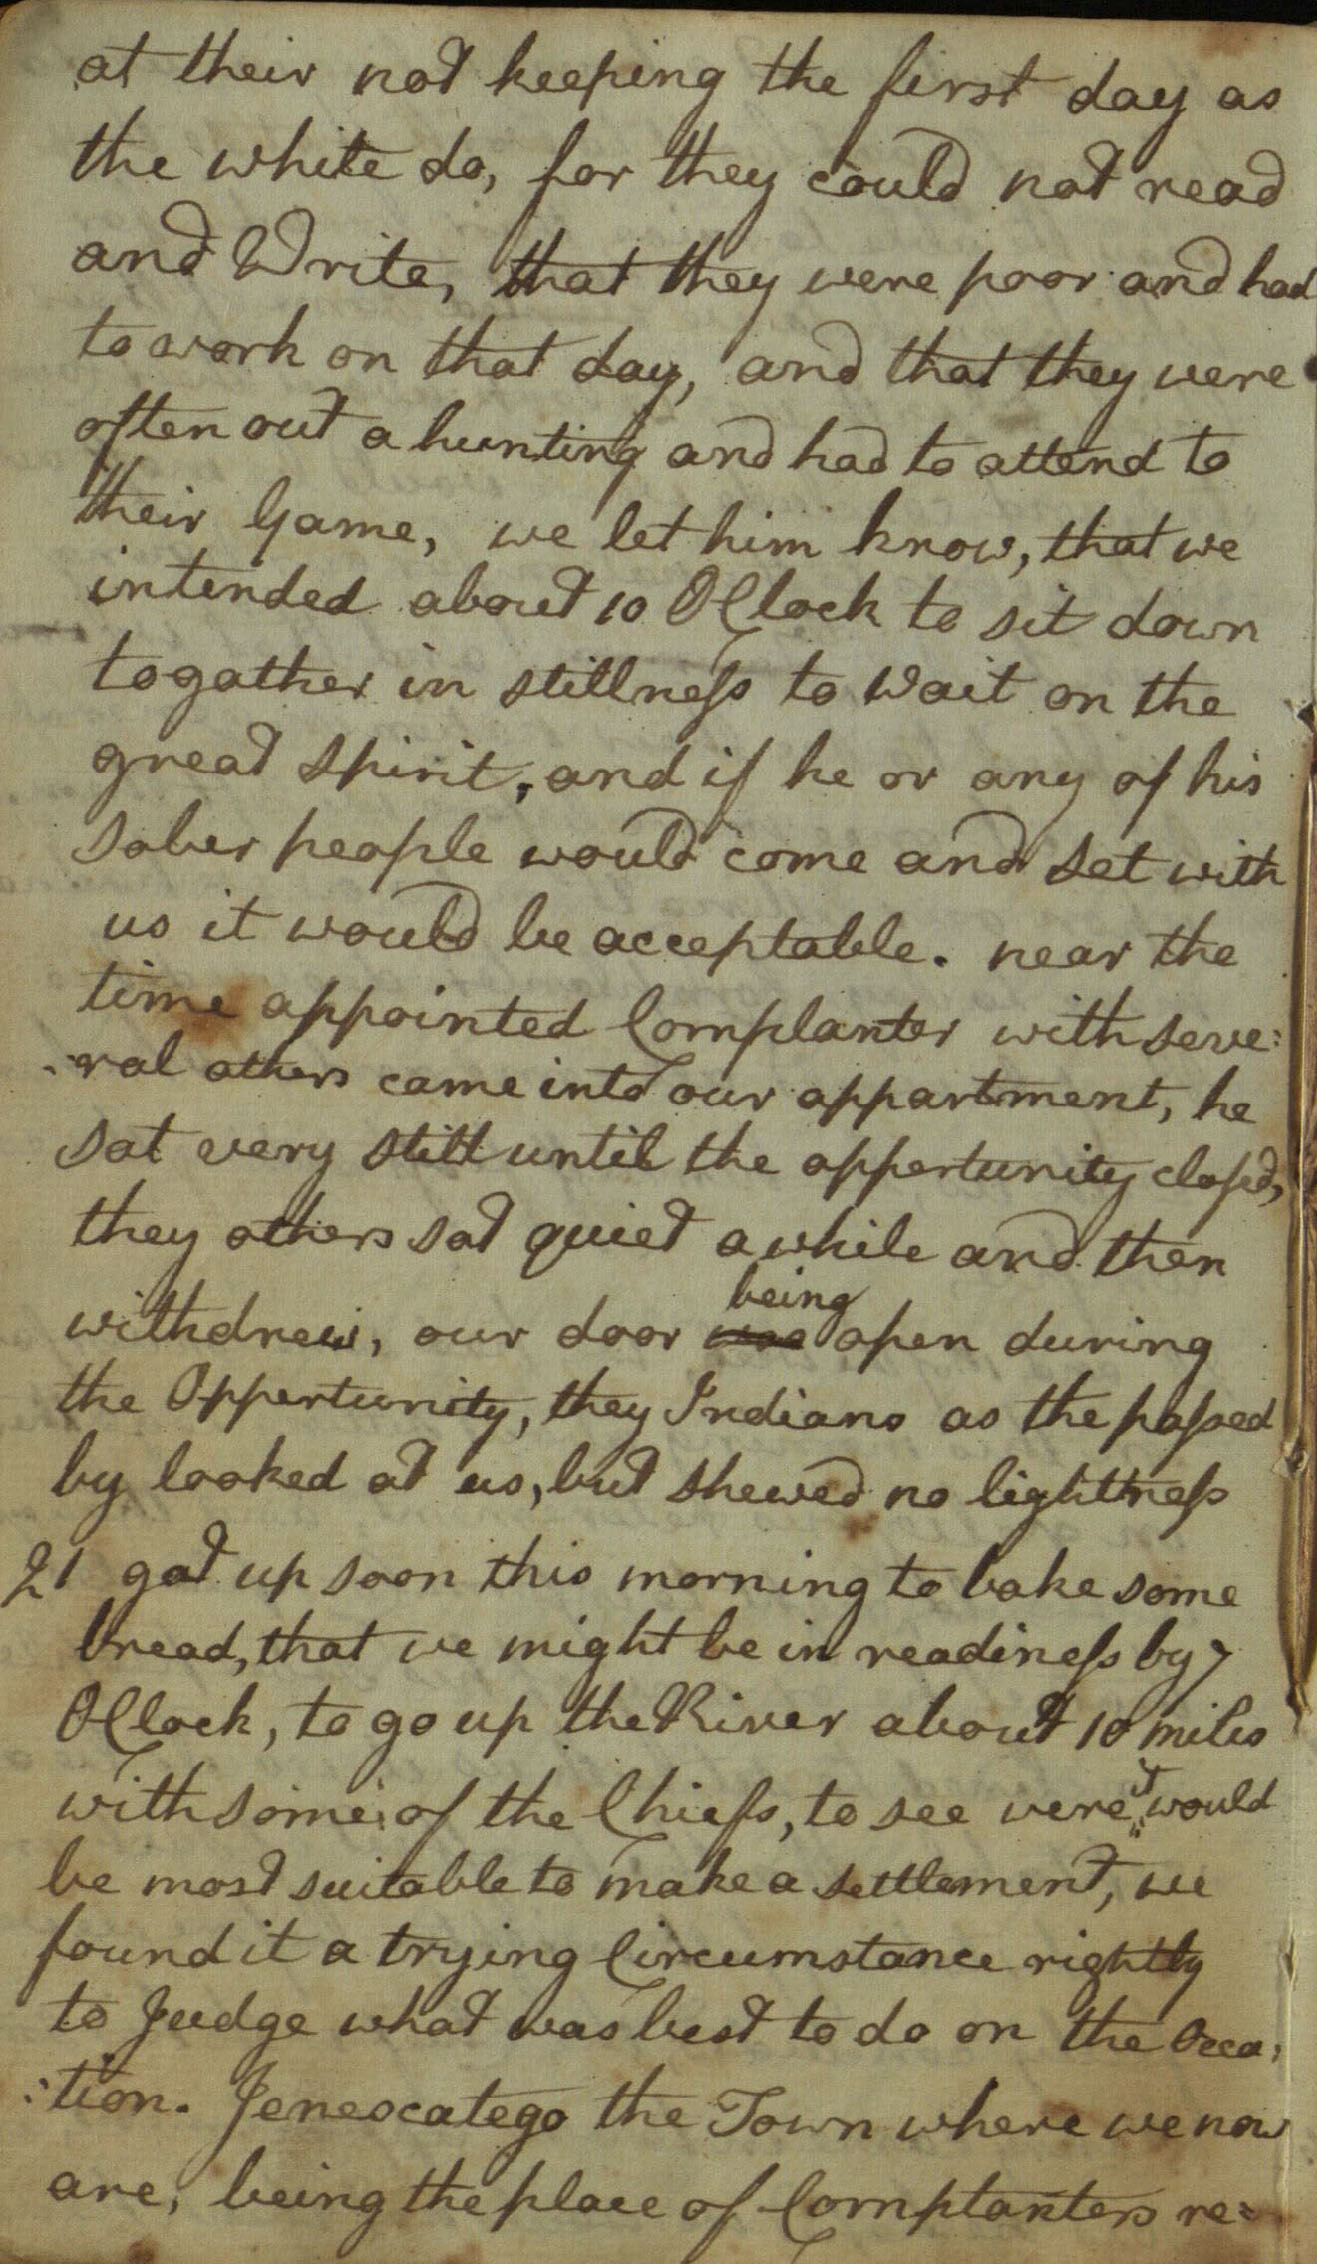 at their not keeping the first day as
the white do, for they could not read
and Write, that they were poor and had
to work on that day, and that they were
often out a hunting and had to attend to
their Game, we let him know, that we
intended about 10 OClock to sit down
togather in stillness to Wait on the
great Spirit, and if he or any of his
Sober people would come and set with
us it would be acceptable. near the
time appointed Cornplanter with seve:
:ral others came into our appartment, he
sat very still until the oppertunity closed,
they others sat quiet a while and then
withdrew, our door was being open during
the Oppertunity, they Indians as the passed
by looked at us, but shewed no lightness
21 got up soon this morning to bake some
bread, that we might be in readiness by 7
OClock, to go up the River about 10 miles
with some of the Chiefs, to see were it would
be most suitable to make a settlement, we
found it a trying Circumstance rightly
to Judge what was best to do on the Occa:
:tion. Jenescatego the Town where we now
are, being the place of Cornplanters re=